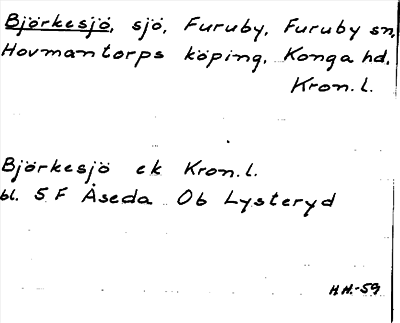 Björkesjö, sjö, Furuby, Furuby sn,
Hovmantorps köping, Konga hd,
Kron. l.
Björkesjö ek Kron. l.
bl. 5 F Åseda Ob Lysteryd
H.H.-59